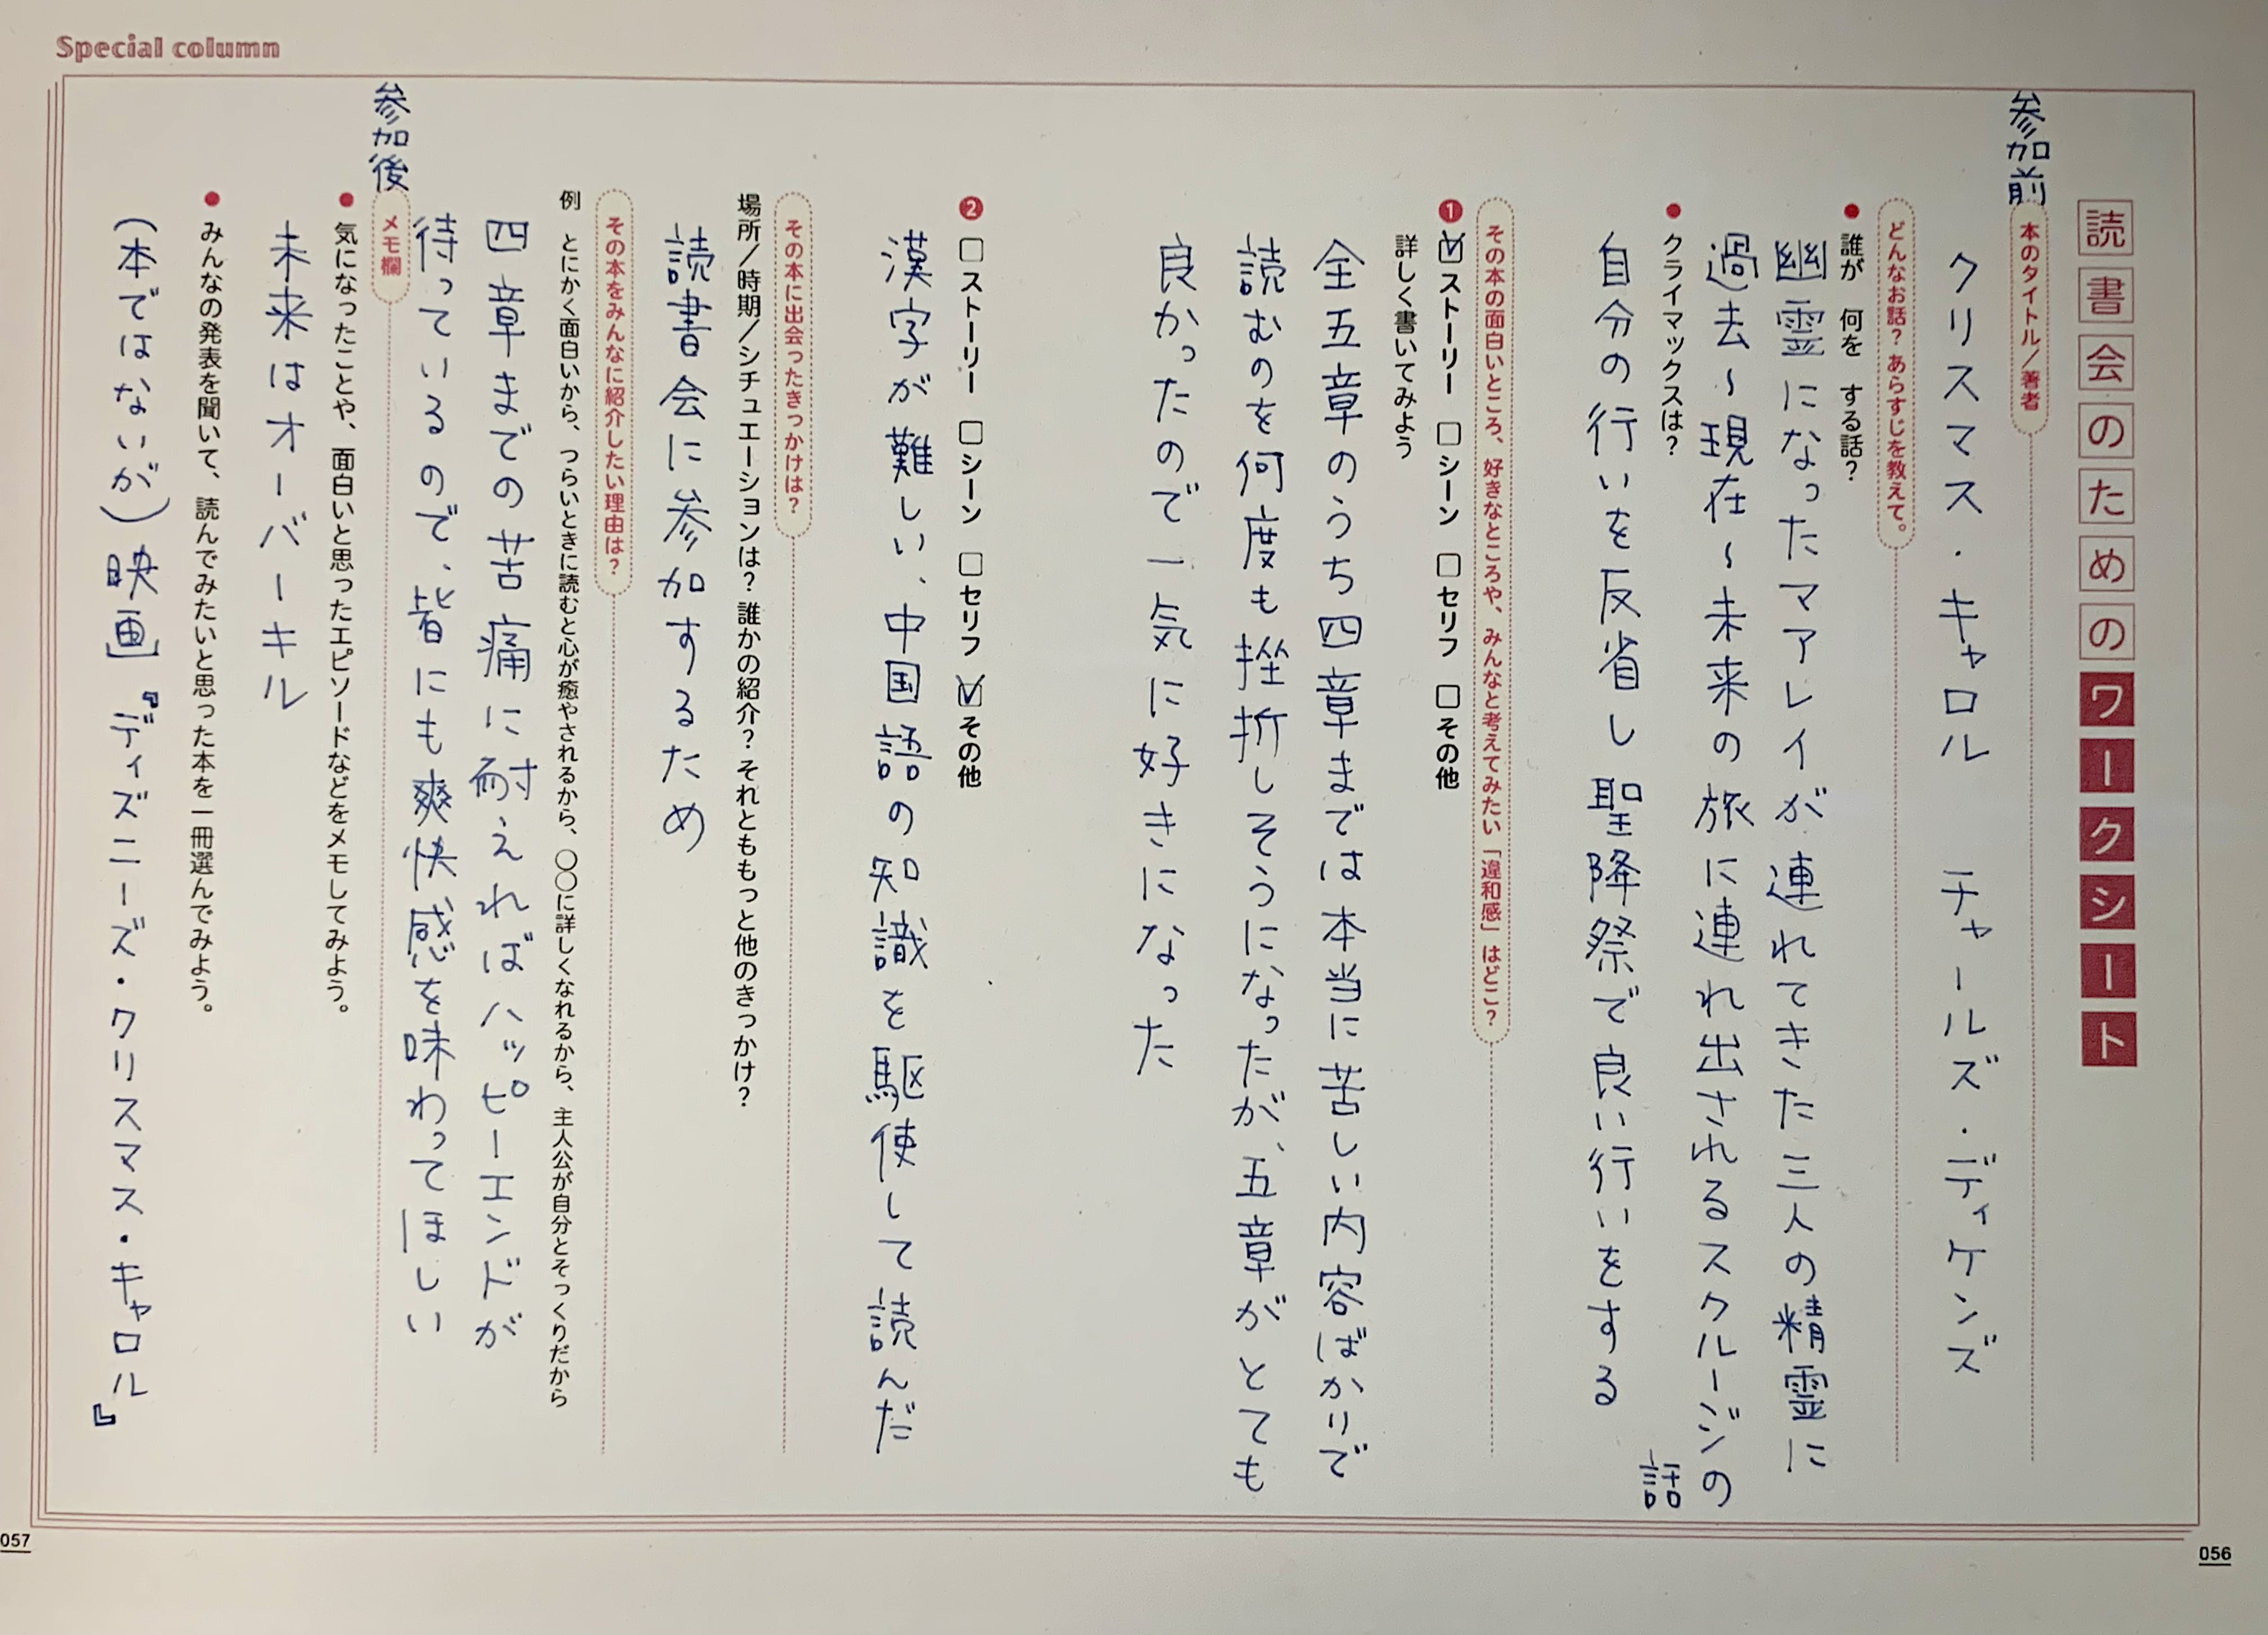 Special column
読書会のためのワークシート
参加前
本のタイトル／著者
クリスマス・キャロル　チャールズ・ディケンズ
どんなお話？ あらすじを教えて。
● 誰が　何を　する話？
幽霊になったマアレイが連れてきた三人の精霊に
過去～現在～未来の旅に連れ出されるスクルージの
話
● クライマックスは？
自分の行いを反省し聖降祭で良い行いをする
その本の面白いところ、好きなところや、みんなと考えてみたい「違和感」はどこ？
❶ ☑ストーリー □シーン □セリフ □その他
詳しく書いてみよう
全五章のうち四章までは本当に苦しい内容ばかりで
読むのを何度も挫折しそうになったが、五章がとても
良かったので一気に好きになった
❷ □ストーリー □シーン □セリフ ☑その他
漢字が難しい、中国語の知識を駆使して読んだ
その本に出会ったきっかけは？
場所／時期／シチュエーションは？ 誰かの紹介？ それとももっと他のきっかけ？
読書会に参加するため
その本をみんなに紹介したい理由は？
例　とにかく面白いから、つらいときに読むと心が癒やされるから、〇〇に詳しくなれるから、主人公が自分とそっくりだから
四章までの苦痛に耐えればハッピーエンドが
待っているので、皆にも爽快感を味わってほしい
参加後
メモ欄
● 気になったことや、面白いと思ったエピソードなどをメモしてみよう。
未来はオーバーキル
● みんなの発表を聞いて、読んでみたいと思った本を一冊選んでみよう。
（本ではないが）映画『ディズニーズ・クリスマス・キャロル』
056
057